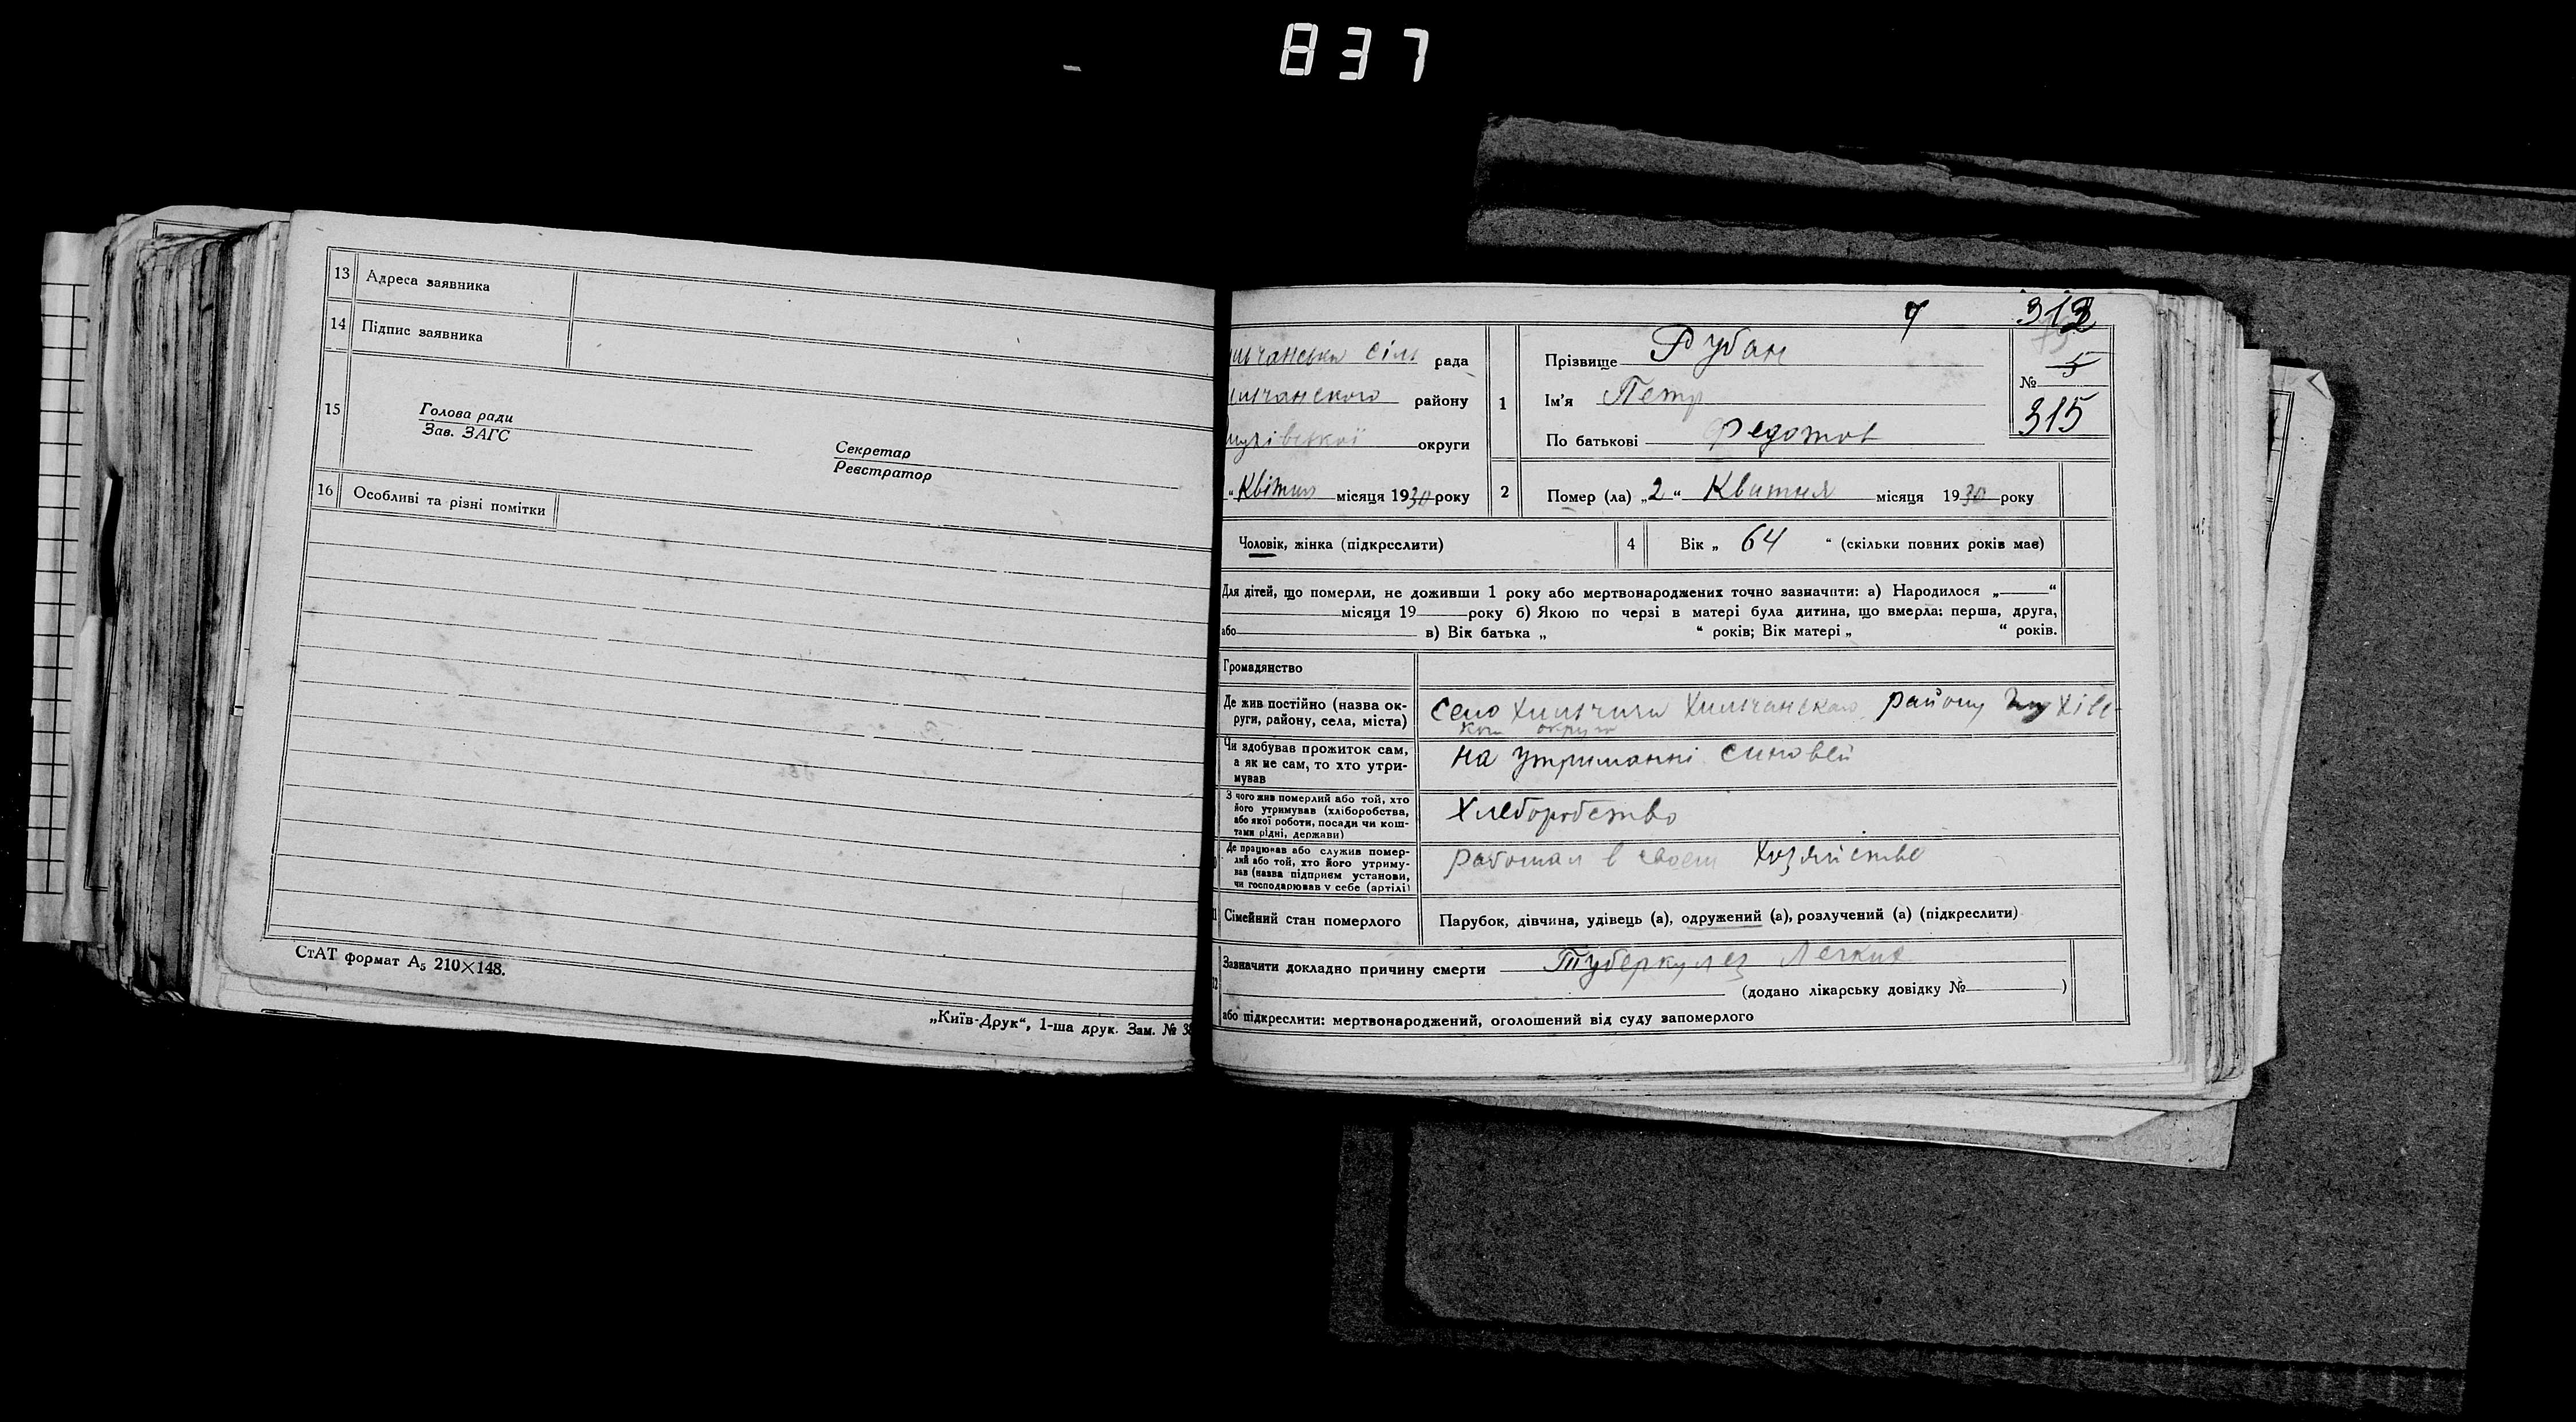 837
13 Адреса заявника
14 Підпис заявника
15
Голова ради
Зав. ЗАГС
Секретар
Реєстратор
16 Особливі та різні помітки
СтАТ формат А5 210×148.
„Київ-Друк“, 1-ша друк. Зам. № 38
7 312
сіль рада
району
округи
“ Квітня місяця 1930 року
1
Прізвище Рубан
Ім'я Петр
По батькові Федотов
№ 5
315
2 Помер (ла) „2“ Квитня місяця 1930 року
Чоловік, жінка (підкреслити)
4 Вік „ 64 “ (скільки повних років має)
Для дітей, що померли, не доживши 1 року або мертвонароджених точно зазначити: а) Народилося „ “
місяця 19 року б) Якою по черзі в матері була дитина, що вмерла: перша, друга,
або в) Вік батька „ “ років; Вік матері „ “ років.
Громадянство
Де жив постійно (назва ок-
руги, району, села, міста)
село Хильчичи Хильчанского району Глухівс-
кои округи
Чи здобував прожиток сам,
а як не сам, то хто утри-
мував
на утриманні синовей
З чого жив померлий або той, хто
його утримував (хліборобства,
або якої роботи, посади чи кош-
тами рідні, держави)
Хлеборобство
Де працював або служив помер-
лий або той, хто його утриму-
вав (назва підприєм установи,
чи господарював у себе (артілі)
работал в своем хозяйстве
Сімейний стан померлого
Парубок, дівчина, удівець (а), одружений (а), розлучений (а) (підкреслити)
Зазначити докладно причину смерти Туберкулез Легких
(додано лікарську довідку № )
або підкреслити: мертвонароджений, оголошений від суду запомерлого